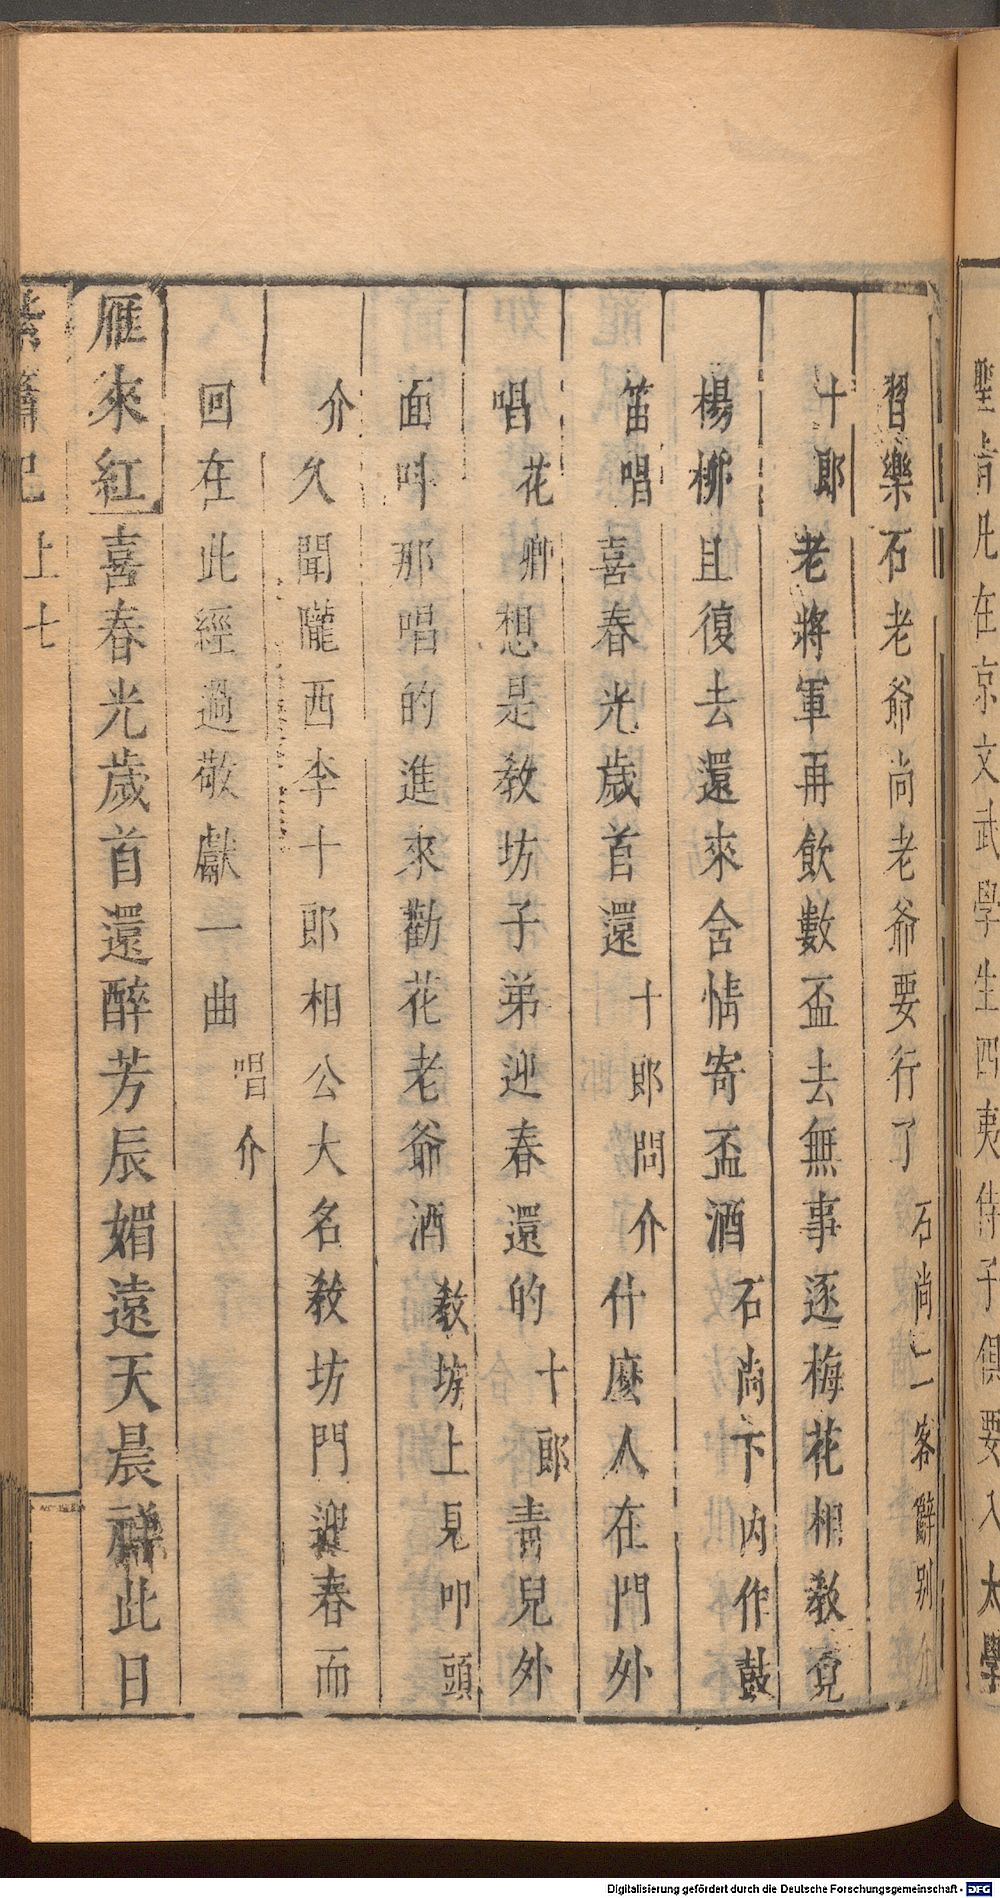 聖旨凡在京文武學生四夷侍子俱要入太學
習樂石老爺尚老爺要行了石尚二客辭別介
十郎老將軍再飲數盃去無事逐梅花相教覓
楊柳且復去還來含情寄盃酒石尚下內作鼓
笛唱喜春光歲首還十郎問介什麼人在門外
唱花卿想是教坊子弟迎春還的十郎青兒外
面呌那唱的進來勸花老爺酒教坊上見叩頭
介久聞隴西李十郎相公大名教坊門迎春而
回在此經過敬獻一曲唱介
雁來紅喜春光歲首還醉芳辰媚遠天晨祥此日
紫簫記上七
Digitalisierung gefördert durch die Deutsche Forschungsgemeinschaft - DFG